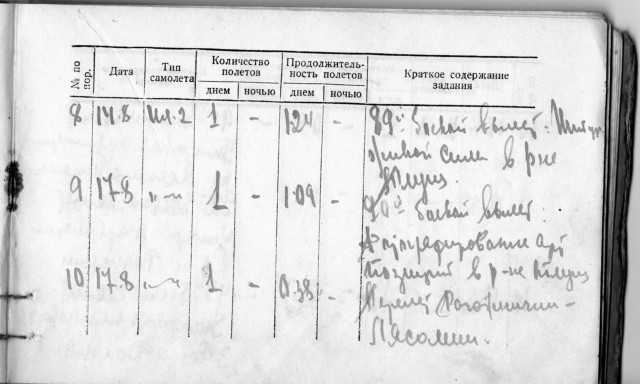 № по пор. Дата Тип самолета Количество полетов Продолжитель- ность полетов Краткое содержание задания
днем ночью днем ночью
8 17.8 Ил-2 1 - 1.24 - 89й боевой вылет:
живой силы в р-не
9 17.8 "-" 1 - 1.09 -
90й боевой вылет:
Бомбардирование арт
10 17.8 "-" 1 - 0.38 - позиций в р-не
Перелет